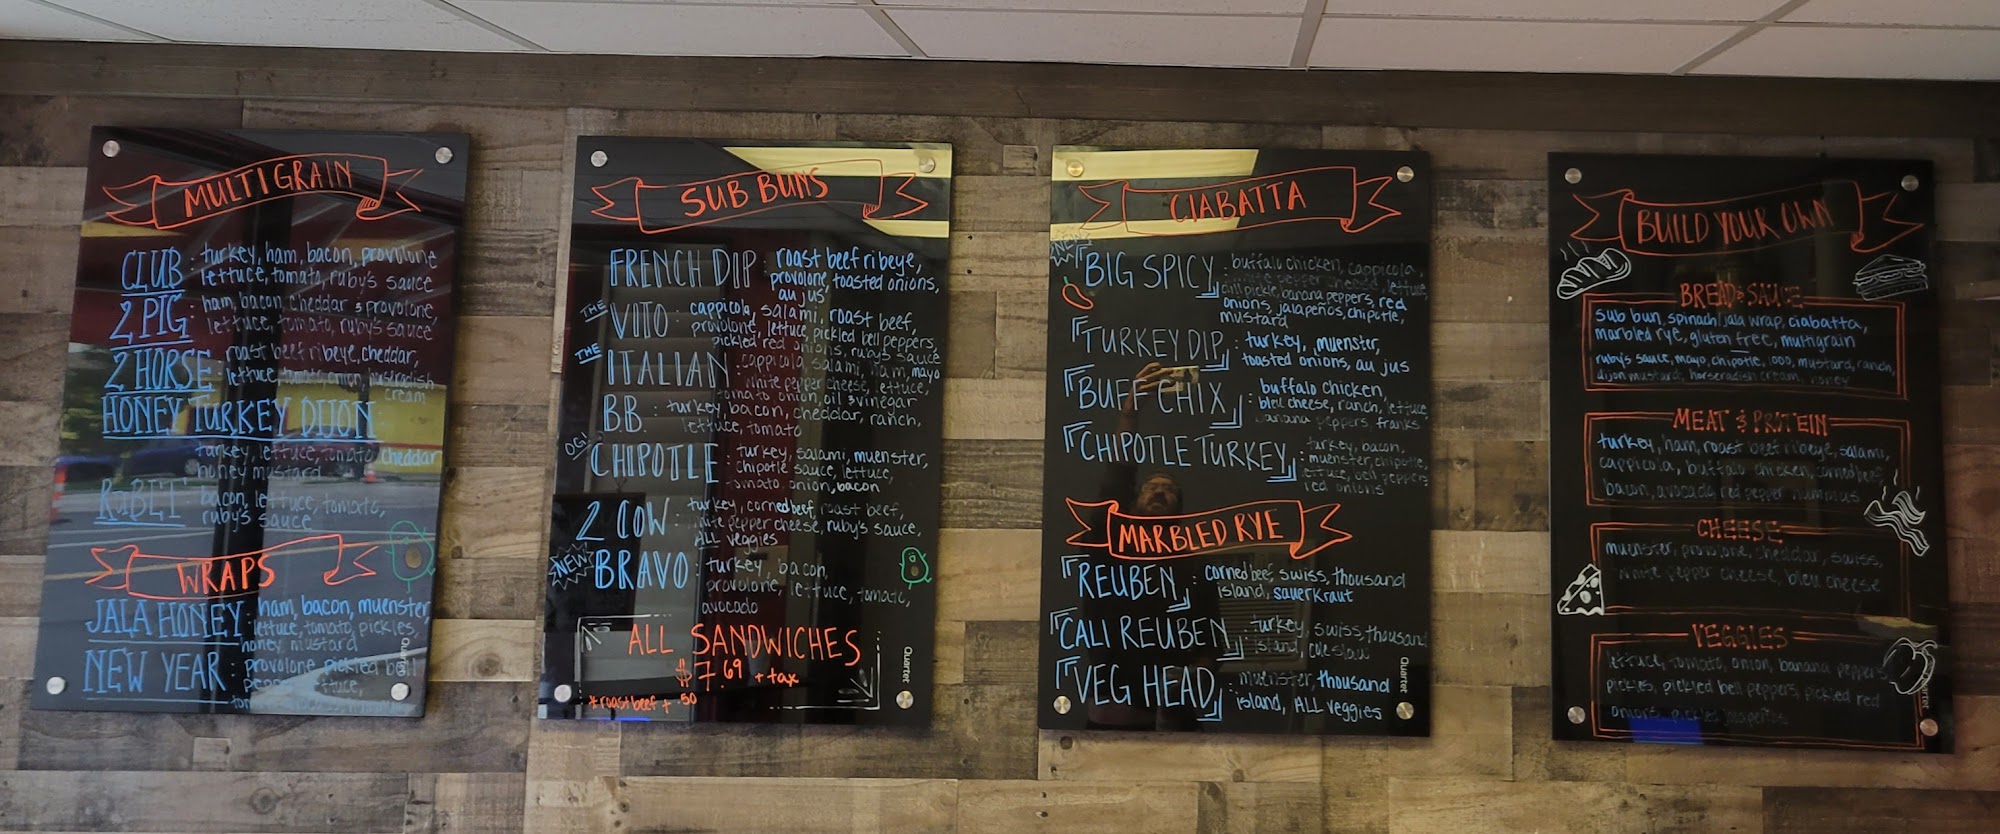 MULTIGRAIN
CLUB : turkey, ham, bacon, provolone
lettuce, tomato, ruby's sauce
2 PIG : ham, bacon, cheddar & provolone,
lettuce, tomato, ruby's sauce
2 HORSE : roast beef ribeye, cheddar,
lettuce, tomato, onion, horseradish
cream
HONEY TURKEY DIJON :
turkey, lettuce, tomato, cheddar
honey mustard
RUBLT : bacon, lettuce, tomato,
ruby's sauce
WRAPS
JALA HONEY : ham, bacon, muenster,
lettuce, tomato, pickles,
honey mustard
NEW YEAR : provolone, pickled bell
peppers, lettuce,
SUB BUNS
FRENCH DIP : roast beef ribeye,
provolone, toasted onions,
au jus
THE VITO : cappicola, salami, roast beef,
provolone, lettuce, pickled bell peppers,
pickled red onions, ruby's sauce
THE ITALIAN : cappicola, salami, ham, mayo
white pepper cheese, lettuce,
tomato, onion, oil & vinegar
BB : turkey, bacon, cheddar, ranch,
lettuce, tomato
OG! CHIPOTLE : turkey, salami, muenster,
chipotle sauce, lettuce,
tomato, onion, bacon
2 COW : turkey, corned beef, roast beef,
white pepper cheese, ruby's sauce,
ALL veggies
NEW BRAVO : turkey, bacon,
provolone, lettuce, tomato,
avocado
ALL SANDWICHES
$7.69 + tax
*roast beef + .50
Quartet
Quartet
CIABATTA
NEW
BIG SPICY : buffalo chicken, cappicola,
white pepper cheese, lettuce,
dill pickle, banana peppers, red
onions, jalapeños, chipotle,
mustard
TURKEY DIP : turkey, muenster,
toasted onions, au jus
BUFF CHIX : buffalo chicken,
bleu cheese, ranch, lettuce,
banana peppers, franks
CHIPOTLE TURKEY : turkey, bacon,
muenster, chipotle,
lettuce, bell peppers,
red onions
MARBLED RYE
REUBEN : corned beef, swiss, thousand
island, sauerkraut
CALI REUBEN : turkey, swiss, thousand
island, coleslaw
VEG HEAD : muenster, thousand
island, ALL veggies
Quartet
BUILD YOUR OWN
BREAD & SAUCE
sub bun, spinach/jala wrap, ciabatta,
marbled rye, gluten free, multigrain
ruby's sauce, mayo, chipotle, 1000, mustard, ranch,
dijon mustard, horseradish cream, honey
MEAT & PROTEIN
turkey, ham, roast beef ribeye, salami,
cappicola, buffalo chicken, corned beef,
bacon, avocado, red pepper hummus
CHEESE
muenster, provolone, cheddar, swiss,
white pepper cheese, bleu cheese
VEGGIES
lettuce, tomato, onion, banana peppers,
pickles, pickled bell peppers, pickled red
onions, pickled jalapeños
Quartet